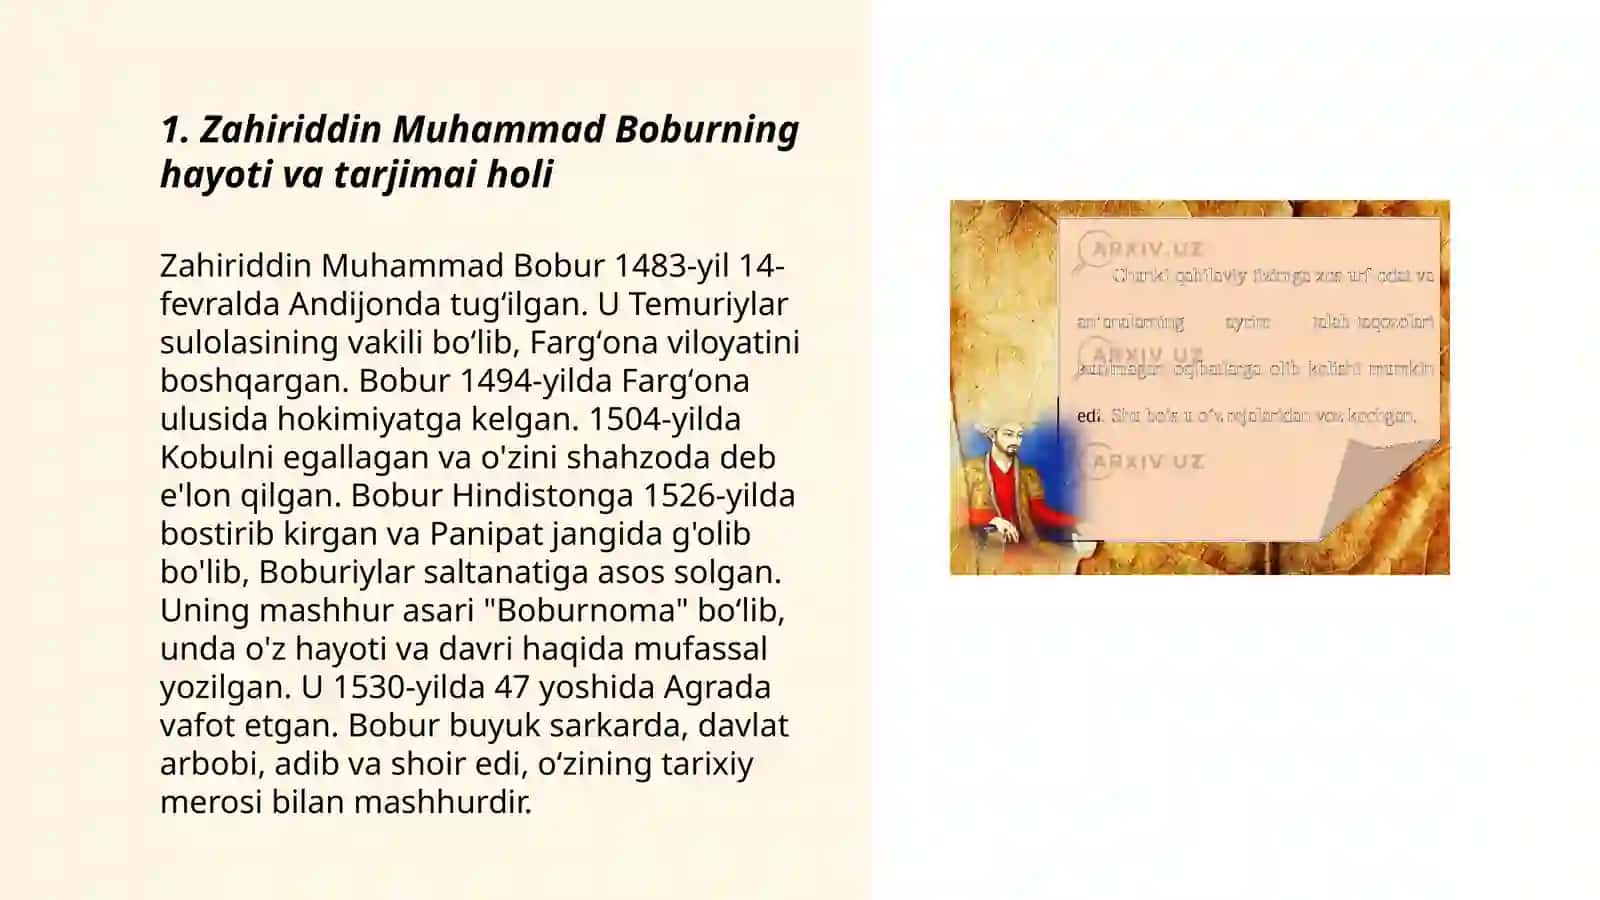 1. Zahiriddin Muhammad Boburning
hayoti va tarjimai holi
Zahiriddin Muhammad Bobur 1483-yil 14-
fevralda Andijonda tug‘ilgan. U Temuriylar
sulolasining vakili bo‘lib, Farg‘ona viloyatini
boshqargan. Bobur 1494-yilda Farg‘ona
ulusida hokimiyatga kelgan. 1504-yilda
Kobulni egallagan va o'zini shahzoda deb
e'lon qilgan. Bobur Hindistonga 1526-yilda
bostirib kirgan va Panipat jangida g'olib
bo'lib, Boburiylar saltanatiga asos solgan.
Uning mashhur asari "Boburnoma" bo‘lib,
unda o'z hayoti va davri haqida mufassal
yozilgan. U 1530-yilda 47 yoshida Agrada
vafot etgan. Bobur buyuk sarkarda, davlat
arbobi, adib va shoir edi, o‘zining tarixiy
merosi bilan mashhurdir.
ARXIV.UZ
Chunki qabilaviy tizimga xos urf odat va
an'analarning ayrim talab taqozolari
ARXIV.UZ
kutilmagan oqibatlarga olib kelishi mumkin
edi. Shu bois u o‘z rejalaridan voz kechgan.
ARXIV.UZ